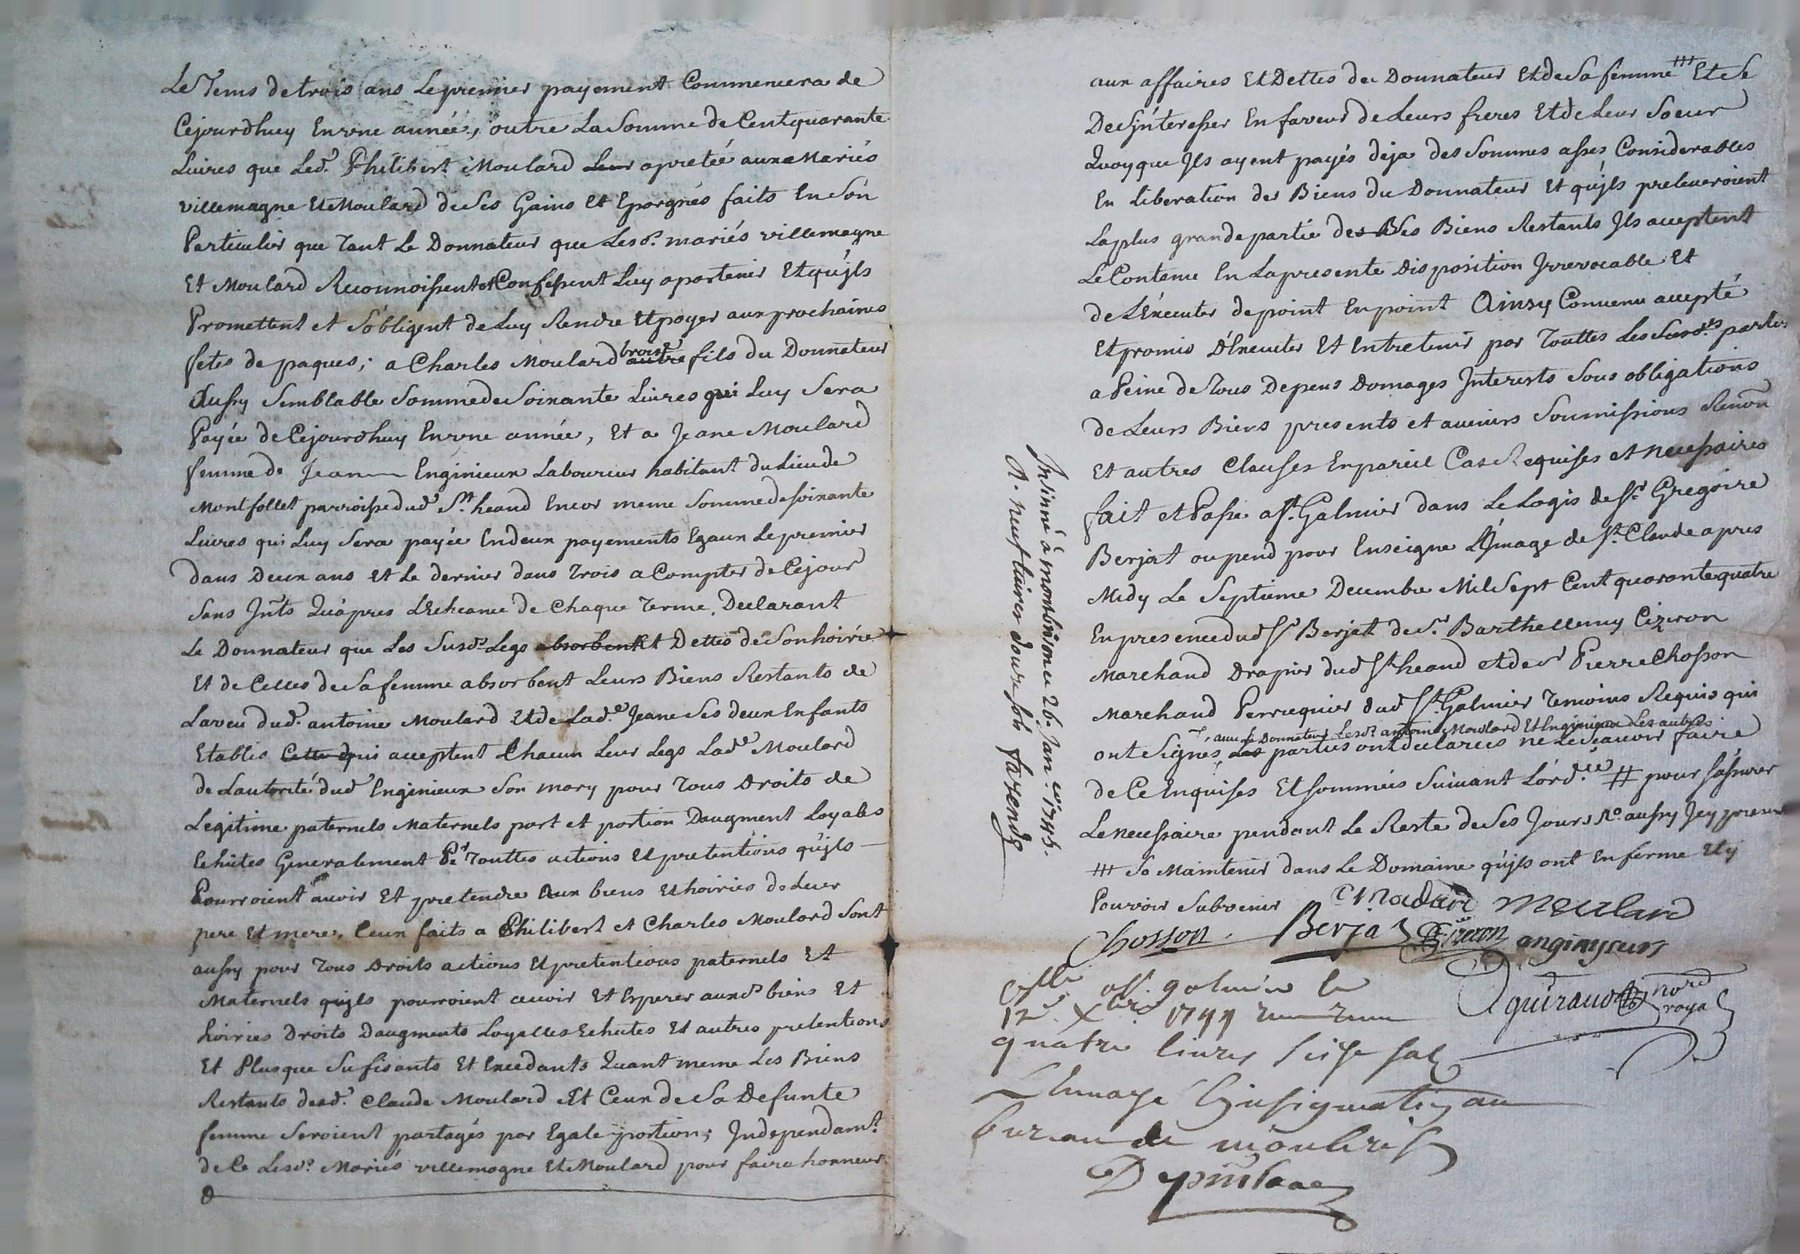 Le Tems de trois ans Le premier payement Commencera de
Cejourdhuy En vne année, outre La Somme de Cent quarante
Livres que Led. Philibert Moulard Leur a pretée aux Mariés
villemagne Et Moulard de Ses Gains et Epargnés faits En Son
Particulier que Tant Le Donnateur que Lesd. mariés villemagne
Et Moulard Reconnoissent et Confessent Luy apartenir Et qu'jls
Promettent et S'obligent de Luy Rendre Et payer aux prochaines
fetes de paques; a Charles Moulard autre fils du Donnateur
Aussy Semblable Somme de Soixante Livres qui Luy Sera
Payée de Cejourdhuy En vne année, Et a Jeane Moulard
femme de Jean Enginieux Laboureur habitant du Lieu de
Montfollet parroisse dud. St. heand Encor meme Somme de soixante
Livres qui Luy Sera payée En deux payements Egaux Le premier
dans Deux ans et Le dernier dans Trois a Compter de Cejour
Sans Jnts Qu'apres L'Echeance de Chaque Terme, Declarant
Le Donnateur que Les Susd. Legs absorbent Et Dettes de Son hoirie
Et de Celles de Sa femme absorbent Leurs Biens Restants de
L'aveu dud. antoine Moulard Et de Lad. Jeane Ses deux Enfants
Etablis Cette qui acceptent Chacun Leur Legs Lade Moulard
de L'autorité dud. Enginieux Son mary pour Tous Droits de
Legitime paternels Maternels part et portion D'augment Loyales
Echutes Generalement Pr. Touttes actions Et pretentions qu'jls
Pourroient avoir Et pretendre Aux biens Et hoiries de Leur
pere Et mere, Ceux faits a Philibert et Charles Moulard Sont
aussy pour Tous Droits actions Et pretentions paternels Et
Maternels qu'jls pourroient avoir Et Esperer auxd. biens Et
hoiries Droits D'augments Loyalles Echutes Et autres pretentions
Et Plusque Sufisants Et Excedants Quant meme Les Biens
Restants dud. Claude Moulard Et Ceux de Sa Defunte
femme Seroient partagés par Egale portion; Jndependamt.
de Ce Lesd. Mariés villemagne Et Moulard pour faire honneur
aux affaires Et Dettes du Donnateur Et de Sa femme ₶ Et Se
Des Jnteresser En faveur de Leurs freres Et de Leur Soeur
Quoy que Jls ayent payés deja des Sommes asses Considerables
En Liberation des Biens du Donnateur Et qu'jls preleveroient
La plus grande partie des Ses Biens Restants Jls acceptent
Le Contenu En La presente Disposition Jrrevocable Et
de L'Executer de point En point Ainsy Convenu accepté
Et promis D'Executer Et Entretenir par Touttes Les Susd. parties
a Peine de Tous Depens Domages Interests Sous obligations
de Leurs Biens presents et avenirs Soumissions Renon
Et autres Clauses En pareil Cas Requises et necessaires
fait et Passé a St. Galmier dans Le Logis de Sr. Gregoire
Berjat ou pend pour Enseigne L'Jmage de St. Claude apres
Midy Le Septieme Decembre Mil Sept Cent quarante quatre
En presence dud. Sr. Berjat de Sr. Barthellemy Cizeron
Marchand Drapier dud. St. heand et de Sr. Pierre Chosson
Marchand Perruquier dud. St. Galmier Temoins Requis qui
avec le Donnateur Lesd. antoine Moulard Et Enginieux Les autres
ont Signés Les parties ont declarées ne Le Scavoir faire
de Ce Enquises Et Sommées Suivant L'ord.ce # pour S'assurer
Le necessaire pendant Le Reste de Ses Jours Ro. aussy
₶ Se Maintenir dans Le Domaine qu'jls ont En ferme Et y
Pouvoir Subvenir Moulard
Chosson. Berjat Cizeron anginyeurs
Aguiraud nore royal
Insinué a montbrison ce 26. Janr. 1745.
R. neuf livres douze sols
St. galmier le
12e. Xbre 1744
quatre livres Seise sols
bureau de